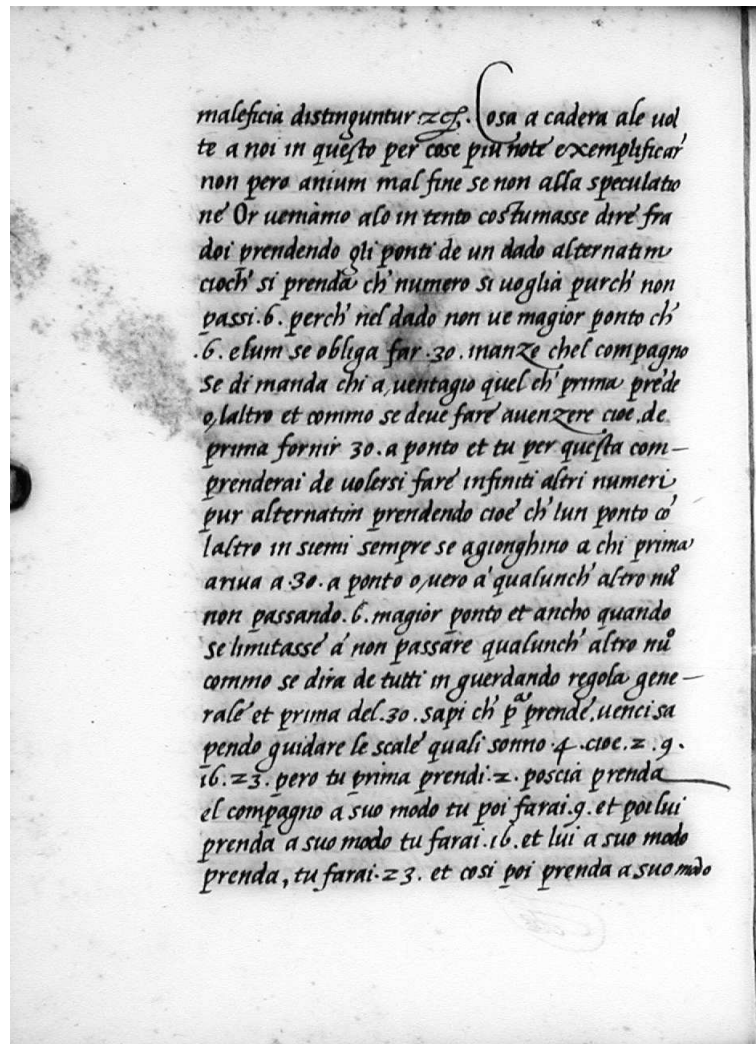 maleficia distinguntur zc̃. Cosa a cadera ale uol
te a noi in questo per cose piu note exemplificar
non pero anium mal fine se non alla speculatio
ne Or ueniamo alo in tento costumasse dire fra
doi prendendo gli ponti de un dado alternatim
cioch' si prenda ch' numero si uoglia purch' non
passi .6. perch' nel dado non ue magior ponto ch'
.6. elum se obliga far .30. inanze chel compagno
Se di manda chi a uentagio quel ch' prima prẽde
o laltro et commo se deue fare auenzere cioe .de
prima fornir 30. a ponto et tu per questa com-
prenderai de uolersi fare infiniti altri numeri
pur alternatim prendendo cioe ch' lun ponto cõ
laltro in siemi sempre se agionghino a chi prima
ariua a .30. a ponto o, uero a qualunch' altro nũo
non passando .6. magior ponto et ancho quando
se limitasse a non passare qualunch' altro nũo
commo se dira de tutti in guerdando regola gene-
rale et prima del .30. sapi ch' pᵃ prende, uenci sa
pendo guidare le scale quali sonno .4. cioe .2. 9.
16. 23. pero tu prima prendi .2. poscia prenda
el compagno a suo modo tu poi farai .9. et poi lui
prenda a suo modo tu farai .16. et lui a suo modo
prenda, tu farai .23. et cosi poi prenda a suo modo